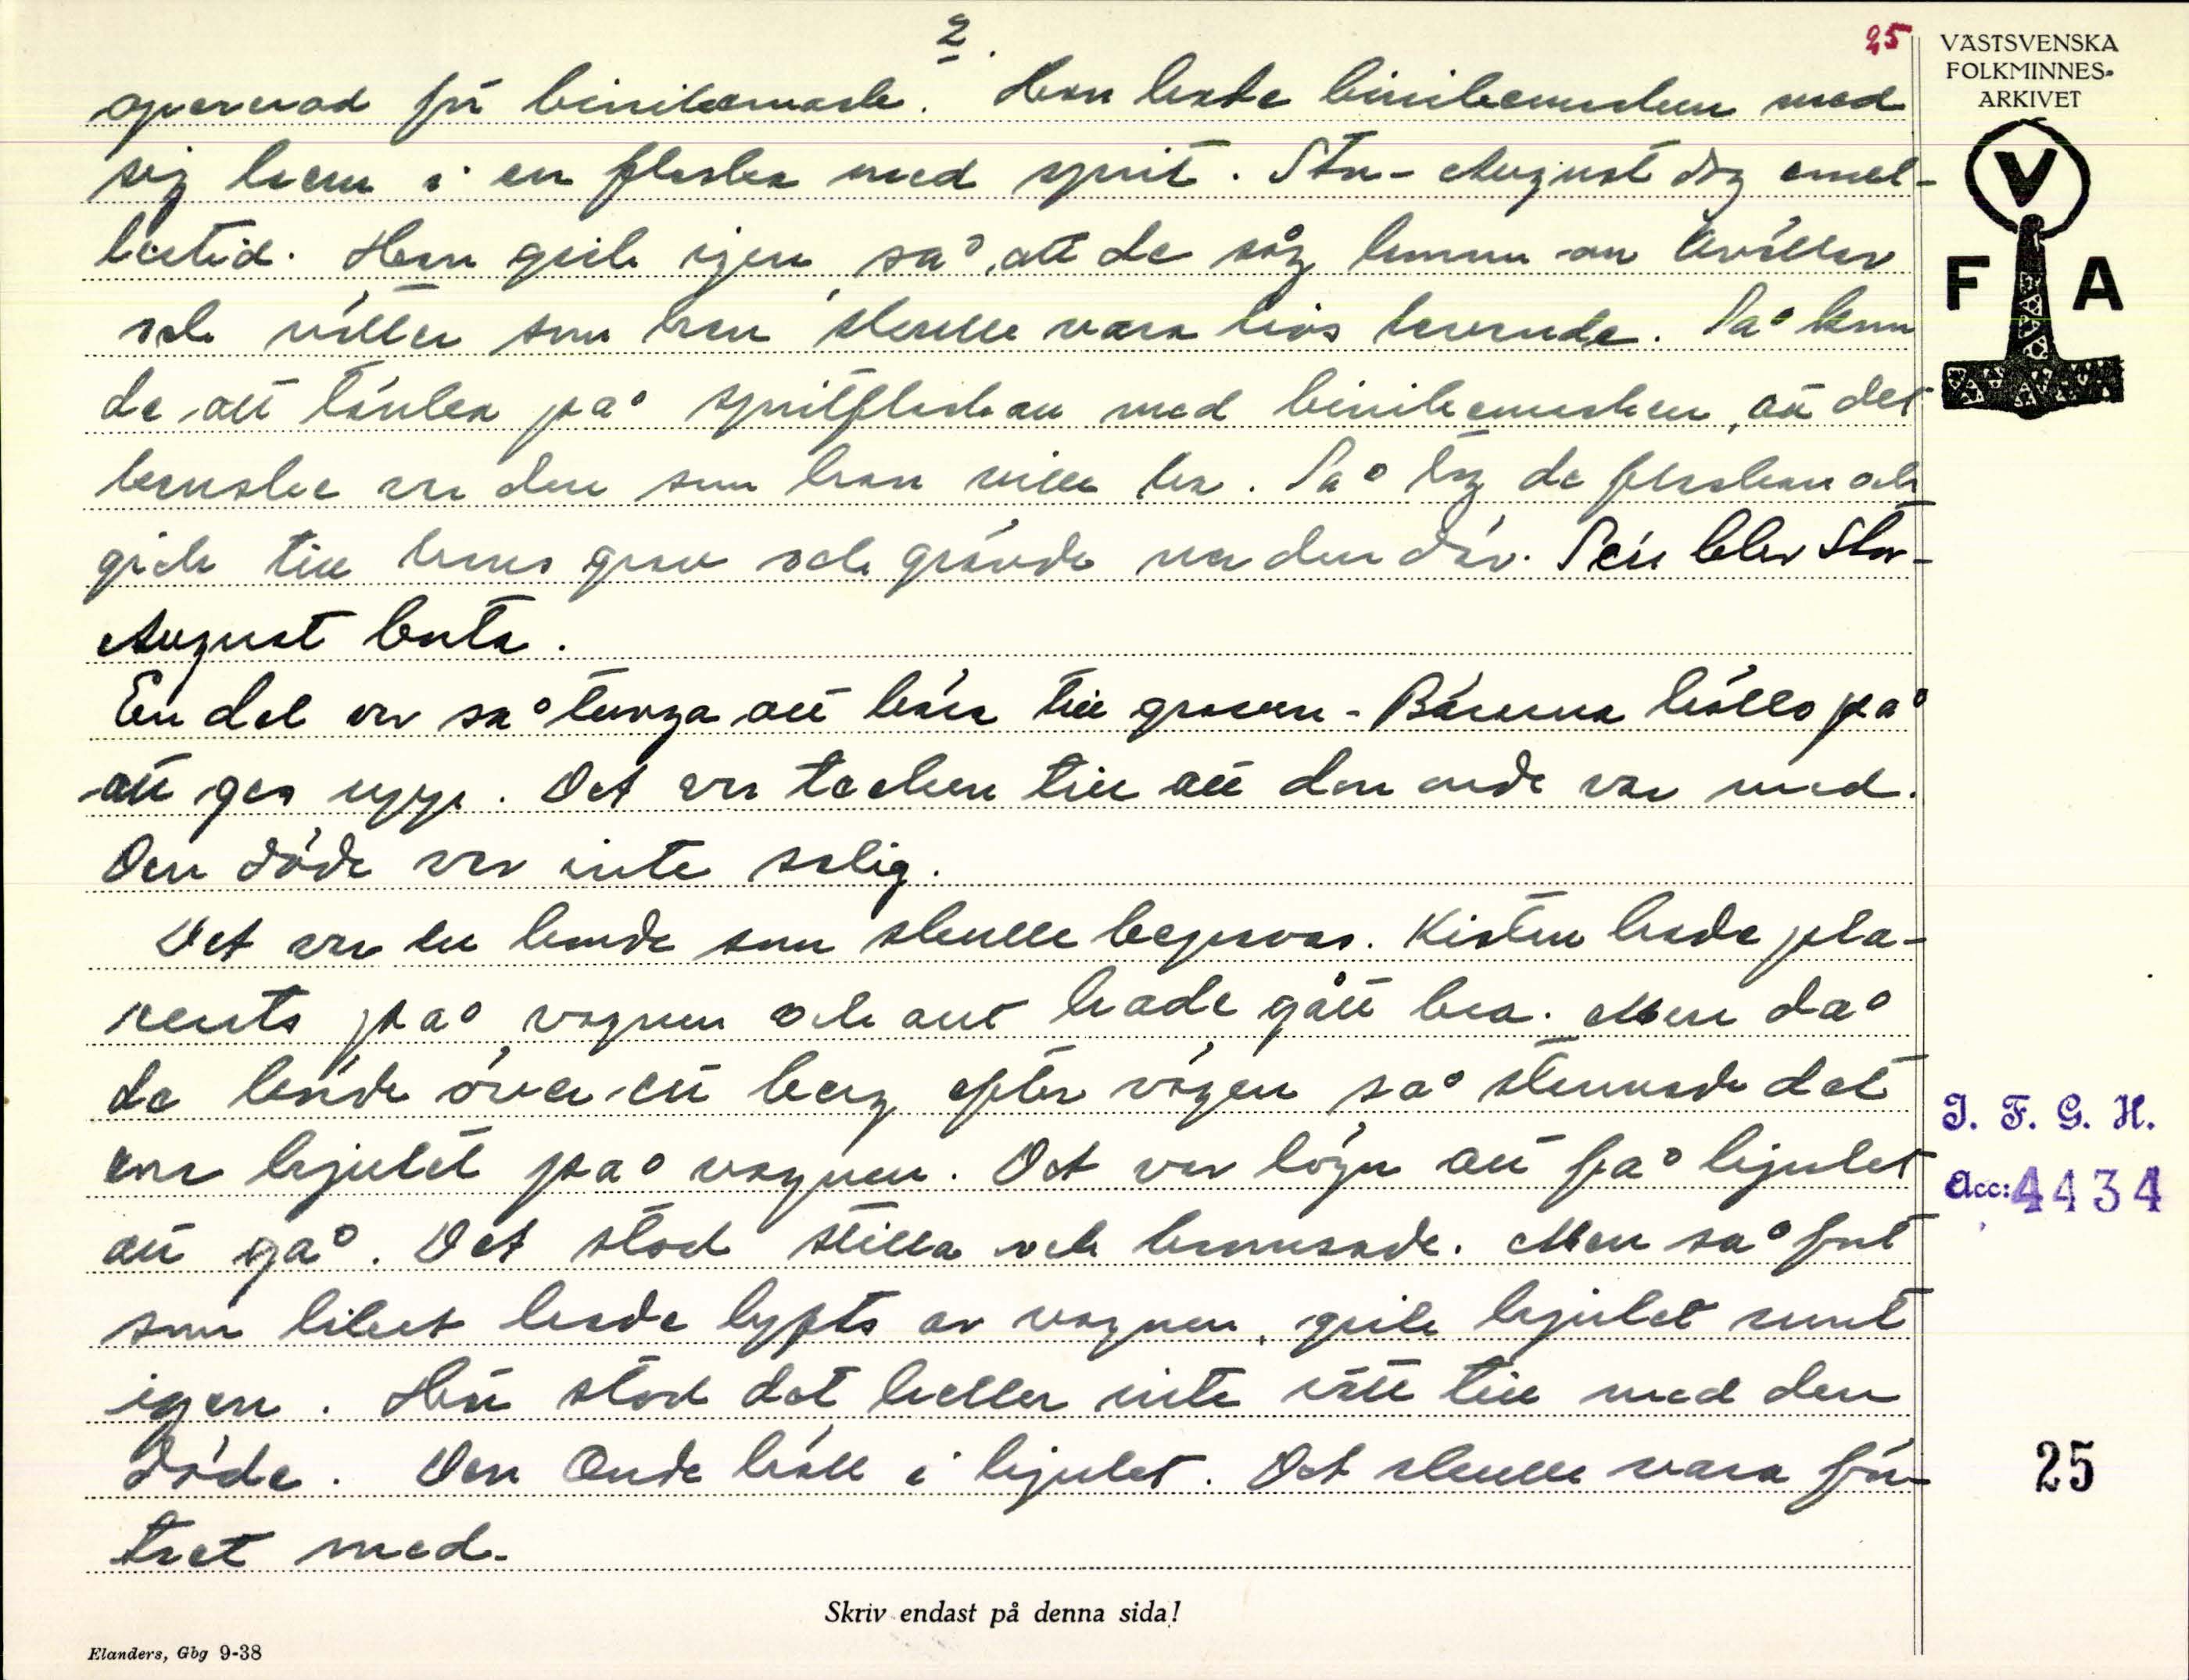 2.
25
VÄSTSVENSKA
FOLKMINNES-
ARKIVET
V
F A
opererad för binikemask. Han hade binikemasken med
sig hem i en flaska med sprit. Stor-August dog emel-
lertid. Han gick igen, så att de såg honom om kvällar
och nätter som han skulle vara livs levande. Så kom
de att tänka på spritflaskan med binikemasken, att det
kanske var den som han ville ha. Så tog de flaskan och
gick till hans grav och grävde ner den där. Sen blev Stor-
August borta.
En del var så tunga att bära till graven - Bärarna hölls på
att ge upp. Det var tecken till att den onde var med.
Den döde var inte salig.
Det var en bonde som skulle begravas. Kistan hade pla-
cerats på vagnen och allt hade gått bra. Men då
de körde över ett berg efter vägen så stannade det
ena hjulet på vagnen. Det var lögn att få hjulet
att gå. Det stod stilla och bromsade. Men så fort
som liket hade lyfts av vagnen, gick hjulet runt
igen. Här stod det heller inte rätt till med den
döde. Den Onde höll i hjulet. Det skulle vara för-
tret med.
I. F. G. H.
Acc: 4434
25
Skriv endast på denna sida!
Elanders, Gbg 9-38